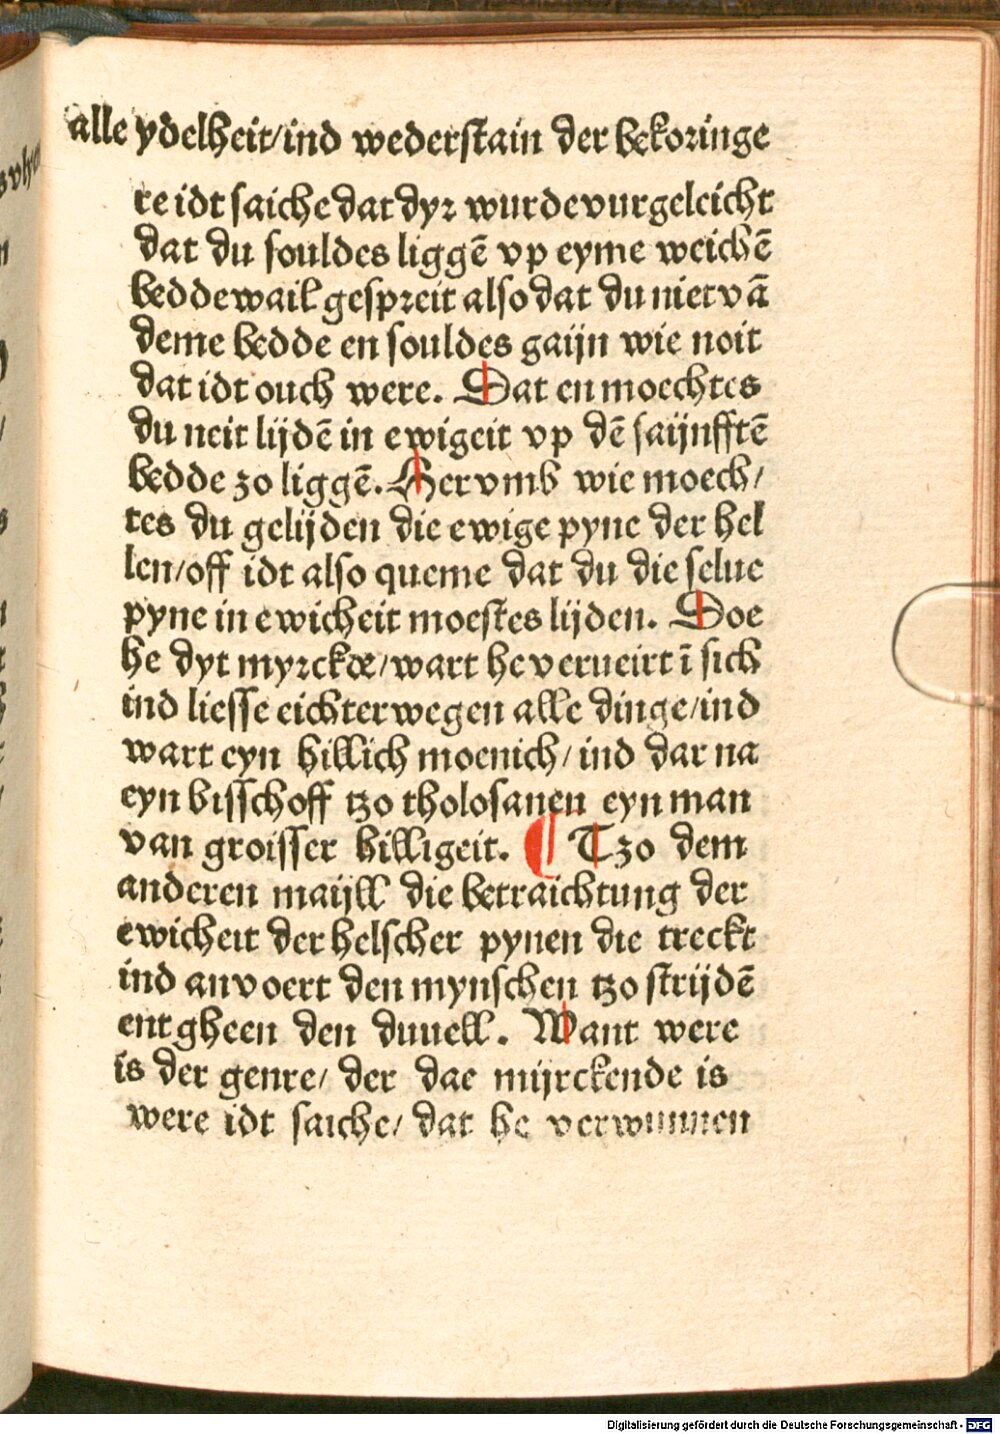 alle ydelheit/ind wederstain der bekoringe
re idt saiche dat dyr wurde vurgeleicht
dat du souldes liggē vp eyme weichē
bedde wail gespreit also dat du niet vā
deme bedde en souldes gaijn wie noit
dat idt ouch were. Dat en moechtes
du neit lijdē in ewigeit vp dē saijnfftē
bedde zo liggē. Her vmb wie moech/
tes du gelijden die ewige pyne der hel
len/off idt also queme dat du die selue
pyne in ewicheit moestes lijden. Doe
he dyt myrckde/wart he verueirt ī sich
ind liesse eichterwegen alle dinge/ind
wart eyn hillich moenich/ind dar na
eyn bisschoff tzo tholosanen eyn man
van groisser hilligeit. ¶ Tzo dem
anderen maijll die betraichtung der
ewicheit der helscher pynen die treckt
ind anvoert den mynschen tzo strijdē
entgheen den duuell. Want were
is der genre/ der dae mijrckende is
were idt saiche/ dat he verwunnen
Digitalisierung gefördert durch die Deutsche Forschungsgemeinschaft - DFG